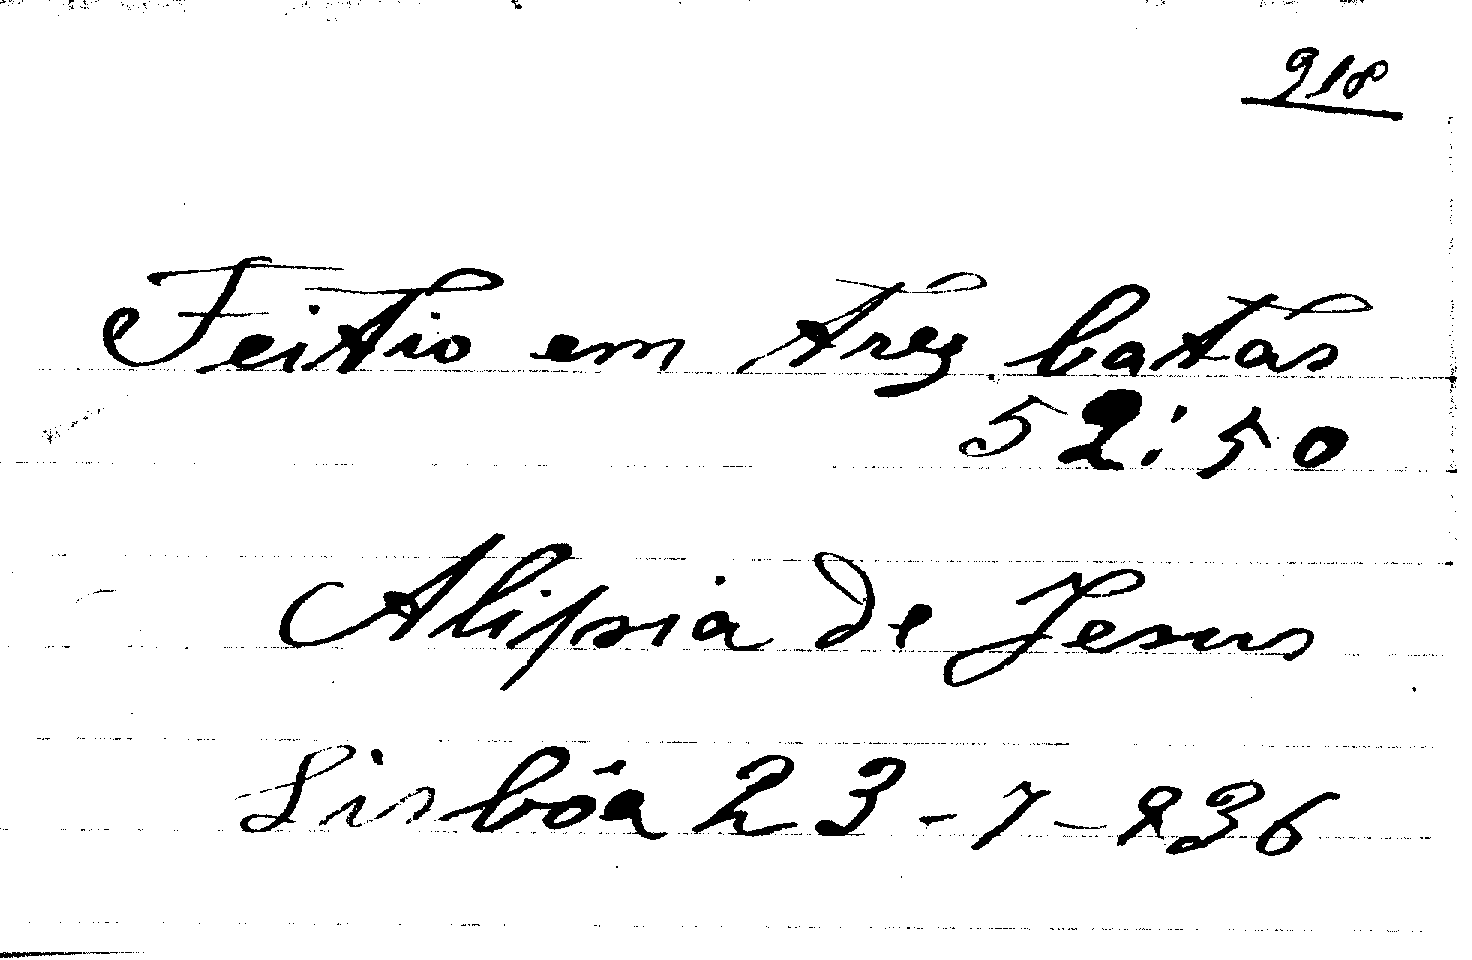 918
Feitio em trez batas
52:50
Alipia de Jesus
Lisbôa 23-7-936